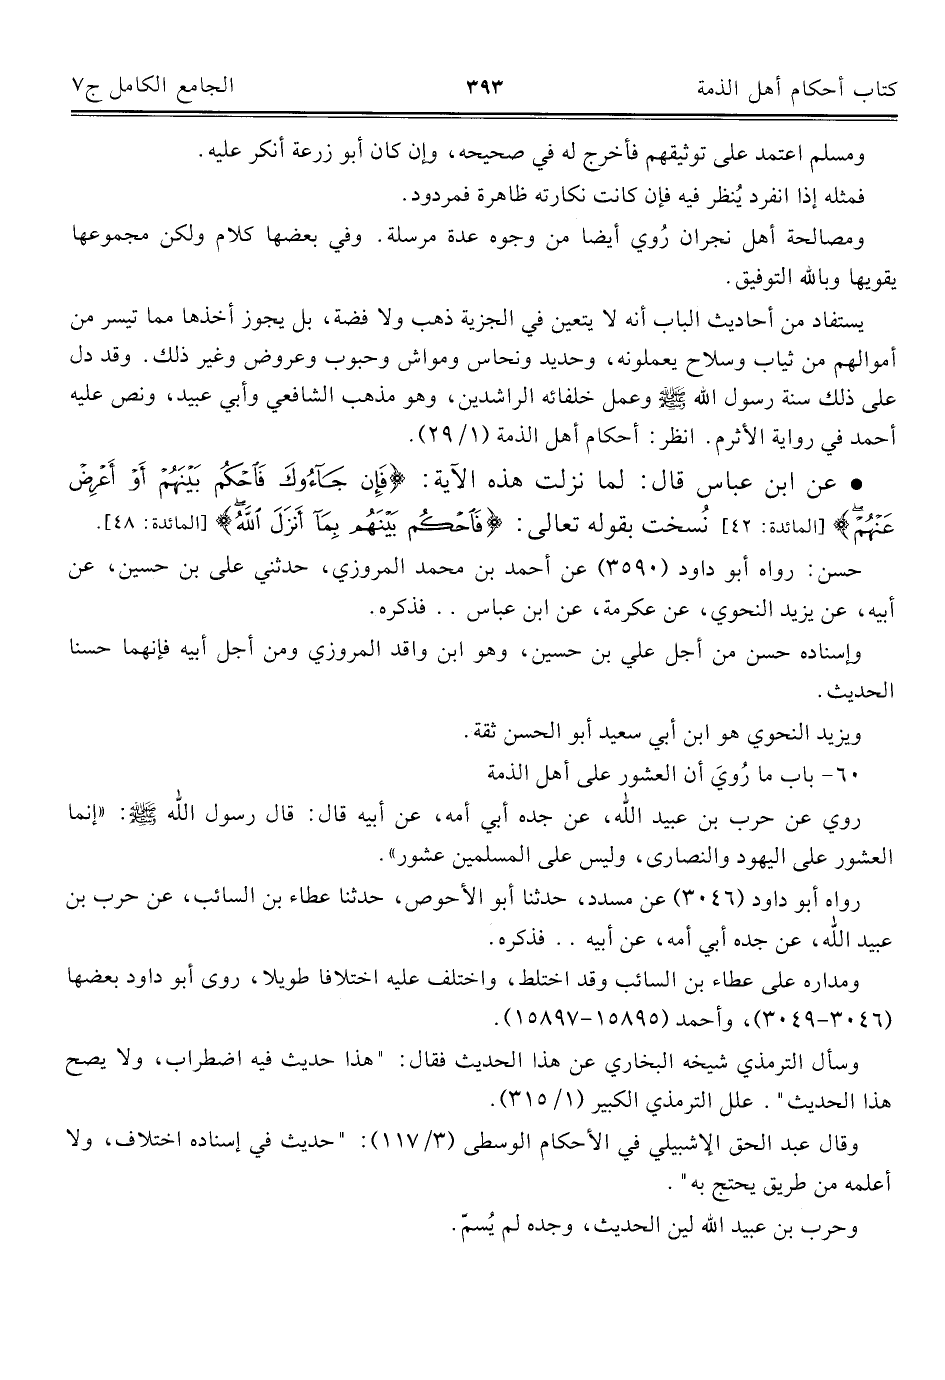 كتاب أحكام أهل الذمة ٣٩٣ الجامع الكامل ج٧
ومسلم اعتمد على توثيقهم فأخرج له في صحيحه، وإن كان أبو زرعة أنكر عليه.
فمثله إذا انفرد يُنظر فيه فإن كانت نكارته ظاهرة فمردود.
ومصالحة أهل نجران رُوي أيضا من وجوه عدة مرسلة. وفي بعضها كلام ولكن مجموعها
يقويها وبالله التوفيق.
يستفاد من أحاديث الباب أنه لا يتعين في الجزية ذهب ولا فضة، بل يجوز أخذها مما تيسر من
أموالهم من ثياب وسلاح يعملونه، وحديد ونحاس ومواش وحبوب وعروض وغير ذلك. وقد دل
على ذلك سنة رسول الله ﷺ وعمل خلفائه الراشدين، وهو مذهب الشافعي وأبي عبيد، ونص عليه
أحمد في رواية الأثرم. انظر: أحكام أهل الذمة (١/ ٢٩).
• عن ابن عباس قال: لما نزلت هذه الآية: ﴿فَإِن جَآءُوكَ فَٱحْكُم بَيْنَهُمْ أَوْ أَعْرِضْ
عَنْهُمْۖ﴾ [المائدة: ٤٢] نُسخت بقوله تعالى: ﴿فَٱحْكُم بَيْنَهُم بِمَآ أَنزَلَ ٱللَّهُۖ﴾ [المائدة: ٤٨].
حسن: رواه أبو داود (٣٥٩٠) عن أحمد بن محمد المروزي، حدثني علي بن حسين، عن
أبيه، عن يزيد النحوي، عن عكرمة، عن ابن عباس .. فذكره.
وإسناده حسن من أجل علي بن حسين، وهو ابن واقد المروزي ومن أجل أبيه فإنهما حسنا
الحديث.
ويزيد النحوي هو ابن أبي سعيد أبو الحسن ثقة.
٦٠- باب ما رُويَ أن العشور على أهل الذمة
روي عن حرب بن عبيد الله، عن جده أبي أمه، عن أبيه قال: قال رسول الله ﷺ: «إنما
العشور على اليهود والنصارى، وليس على المسلمين عشور».
رواه أبو داود (٣٠٤٦) عن مسدد، حدثنا أبو الأحوص، حدثنا عطاء بن السائب، عن حرب بن
عبيد الله، عن جده أبي أمه، عن أبيه .. فذكره.
ومداره على عطاء بن السائب وقد اختلط، واختلف عليه اختلافا طويلا، روى أبو داود بعضها
(٣٠٤٦-٣٠٤٩)، وأحمد (١٥٨٩٥-١٥٨٩٧).
وسأل الترمذي شيخه البخاري عن هذا الحديث فقال: "هذا حديث فيه اضطراب، ولا يصح
هذا الحديث". علل الترمذي الكبير (١/ ٣١٥).
وقال عبد الحق الإشبيلي في الأحكام الوسطى (٣/ ١١٧): "حديث في إسناده اختلاف، ولا
أعلمه من طريق يحتج به".
وحرب بن عبيد الله لين الحديث، وجده لم يُسمّ.